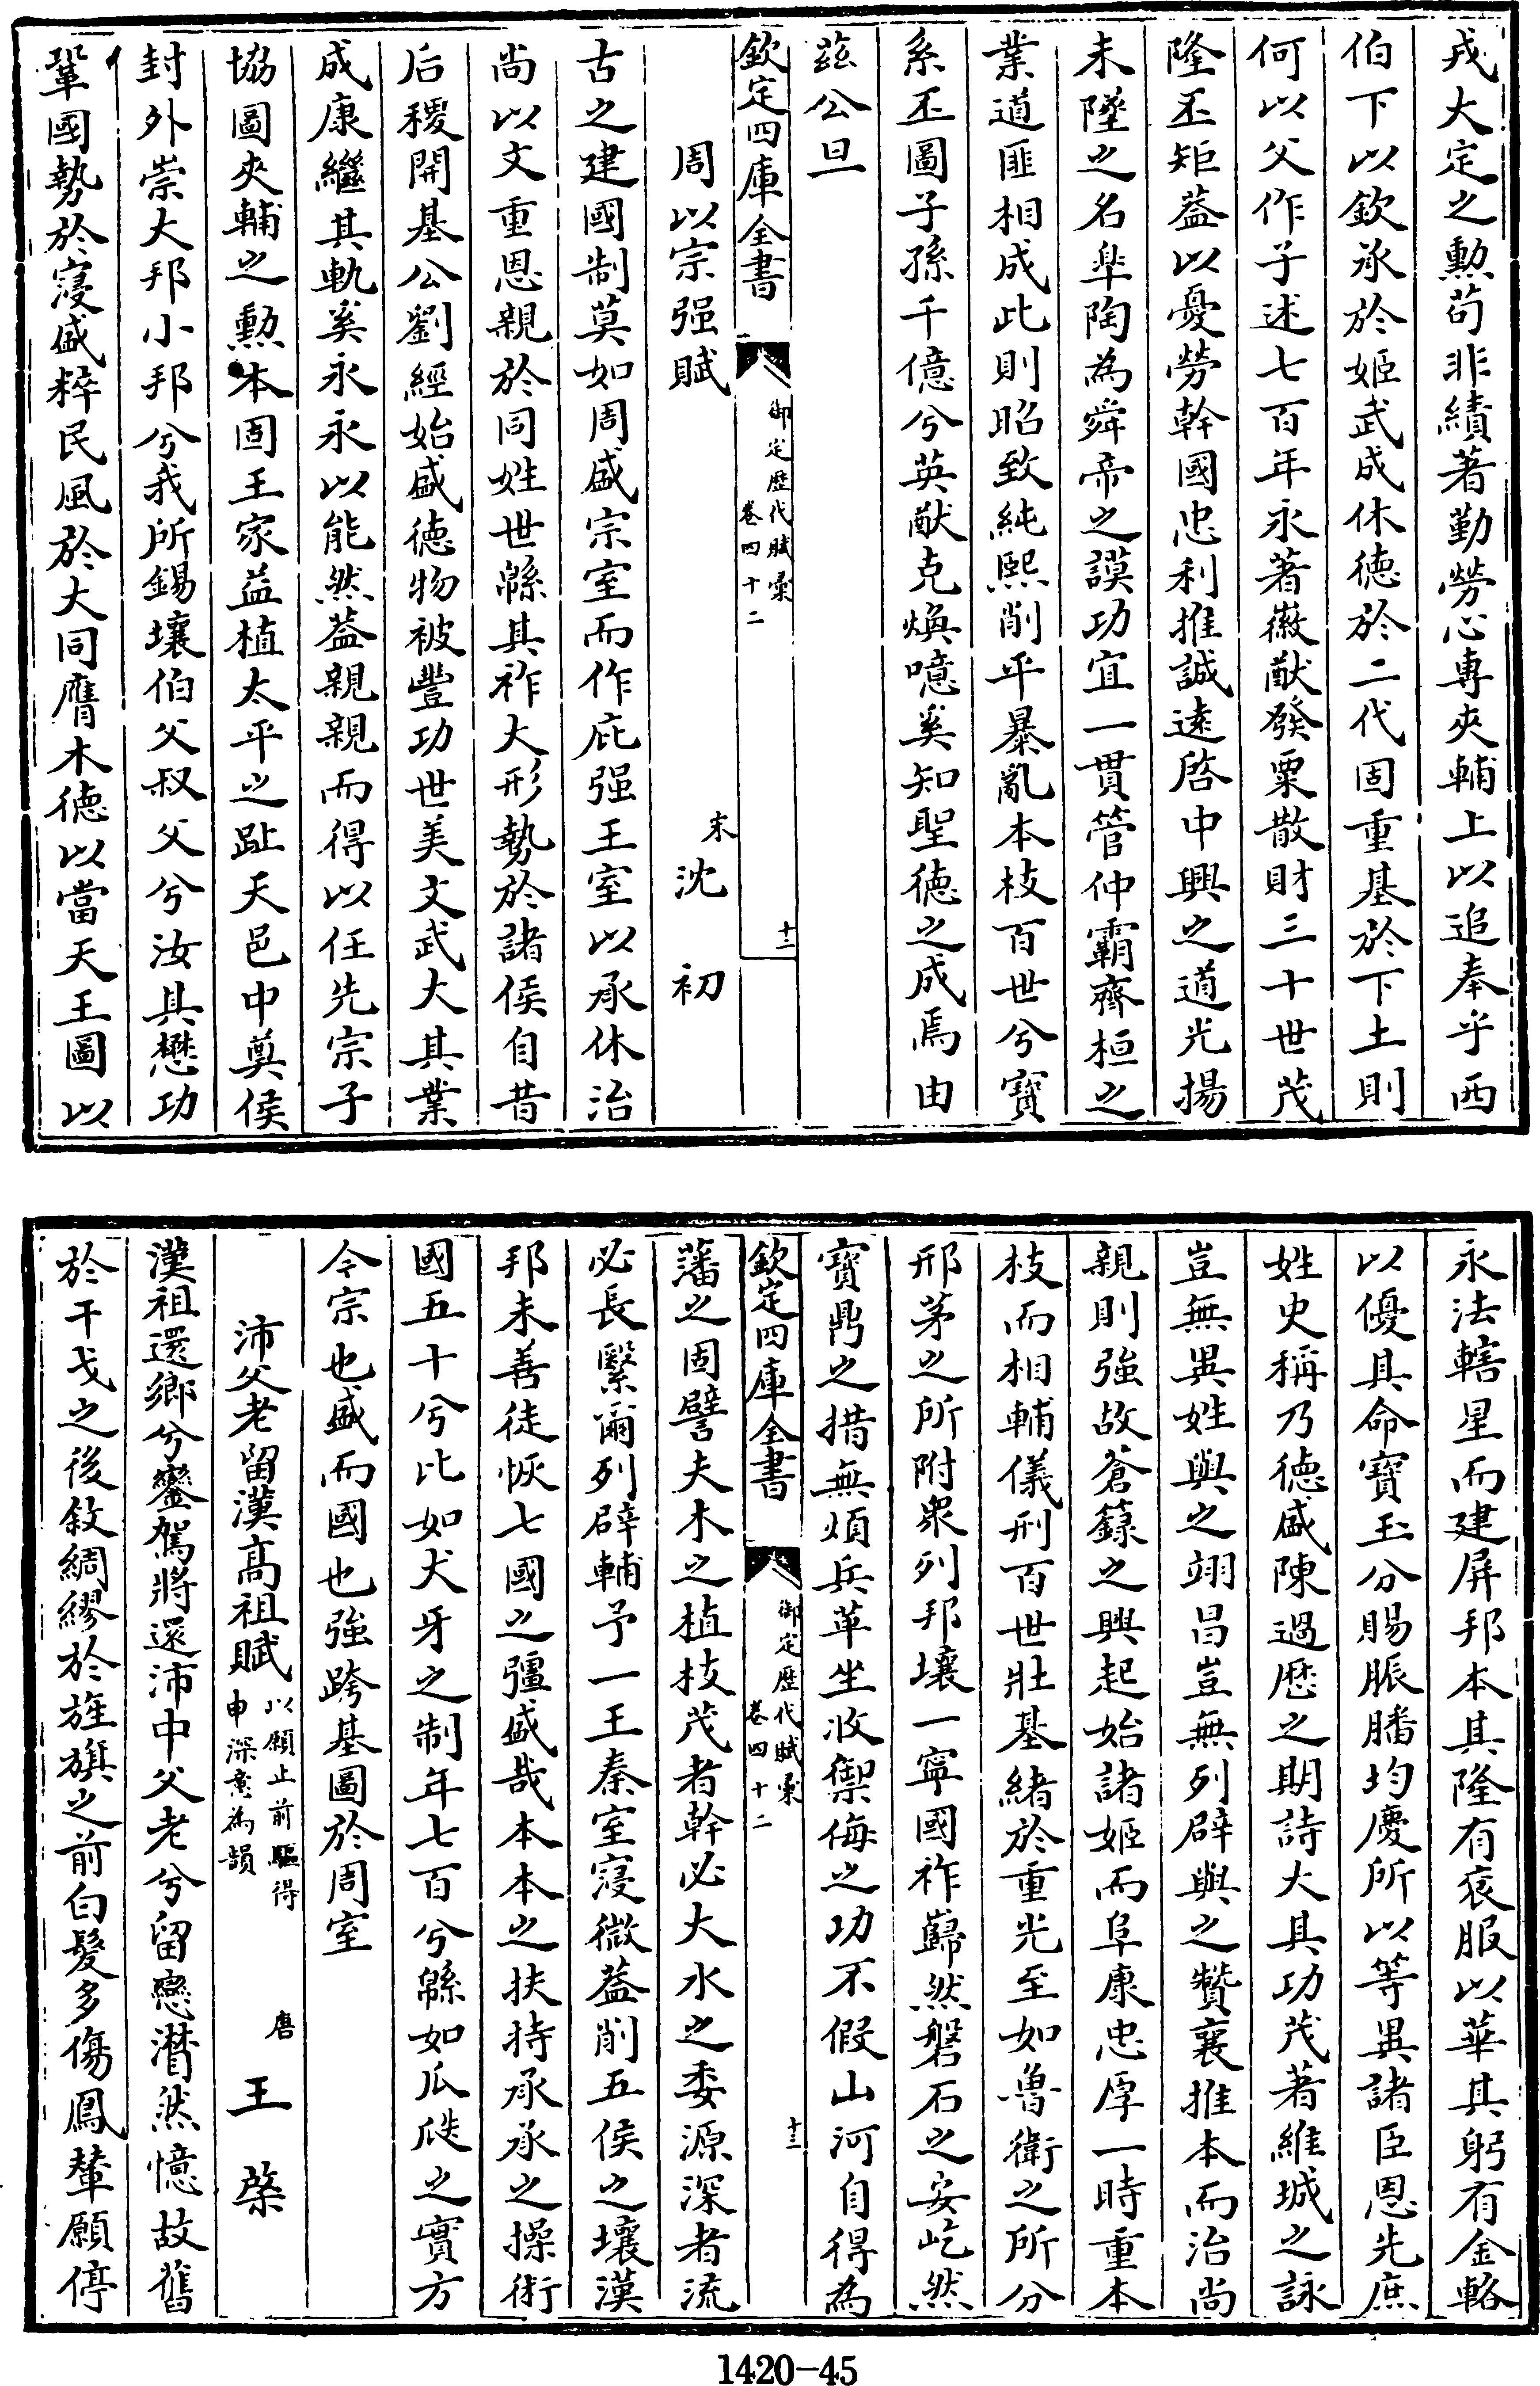 戎大定之勲苟非績著勤勞心專夾輔上以追奉乎西
伯下以欽承於姬武成休徳於二代固重基於下土則
何以父作子述七百年永著徽猷發粟散財三十世茂
隆丕矩葢以憂勞幹國忠利推誠遠啓中興之道光揚
未墜之名臯陶為舜帝之謨功宜一貫管仲霸齊桓之
業道匪相成此則昭致純熙削平暴亂本枝百世兮寳
系丕圖子孫千億兮英猷克煥噫奚知聖徳之成焉由
茲公旦
欽定四庫全書
御定歴代賦彙
卷四十二
十二
周以宗强賦
宋沈初
古之建國制莫如周盛宗室而作庇强王室以承休治
尚以文重恩親於同姓世緜其祚大形勢於諸侯自昔
后稷開基公劉經始盛徳物被豐功世美文武大其業
成康繼其軌奚永永以能然葢親親而得以任先宗子
協圖夾輔之勲本固王家益植太平之趾天邑中奠侯
封外崇大邦小邦兮我所錫壤伯父叔父兮汝其懋功
鞏國勢於寖盛粹民風於大同膺木徳以當天王圖以
永法轄星而建屏邦本其隆有衮服以華其躬有金輅
以優其命寳玉分賜脤膰均慶所以等異諸臣恩先庶
姓史稱乃徳盛陳過歴之期詩大其功茂著維城之詠
豈無異姓與之翊昌豈無列辟與之贊襄推本而治尚
親則強故蒼籙之興起始諸姬而阜康忠厚一時重本
枝而相輔儀刑百世壯基緒於重光至如魯衛之所分
邢茅之所附衆列邦壤一寧國祚巋然磐石之安屹然
寳鼎之措無煩兵革坐收禦侮之功不假山河自得為
欽定四庫全書
御定歴代賦彙
卷四十二
十三
藩之固譬夫木之植枝茂者幹必大水之委源深者流
必長繄爾列辟輔予一王秦室寖微葢削五侯之壤漢
邦未善徒恢七國之彊盛哉本本之扶持承承之操術
國五十兮比如犬牙之制年七百兮緜如瓜瓞之實方
今宗也盛而國也強跨基圖於周室
沛父老留漢高祖賦以願止前驅得申深意為韻
唐王棨
漢祖還鄉兮鑾駕將還沛中父老兮留戀潸然憶故舊
於干戈之後敘綢繆於旌旗之前白髮多傷鳳輦願停
1420-45